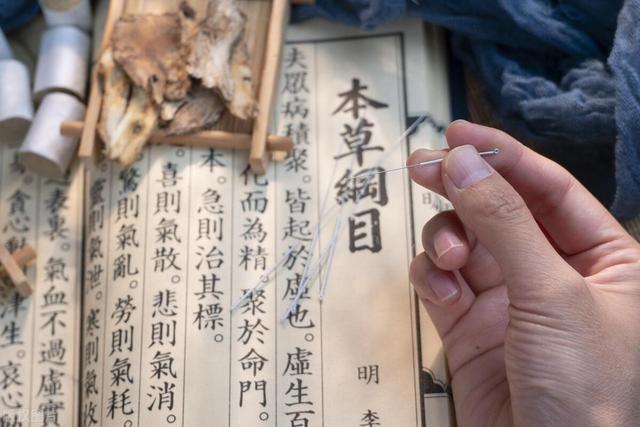 本草綱目
明 李
夫眾病積。皆起於虛也。虛生百
化而為精。聚於命門。
本。急則治其標。
喜則氣散。悲則氣消。
驚則氣亂。勞則氣耗。
則氣泄。寒則氣收
表裏。氣血不過虛實
貪心動
津生。哀心